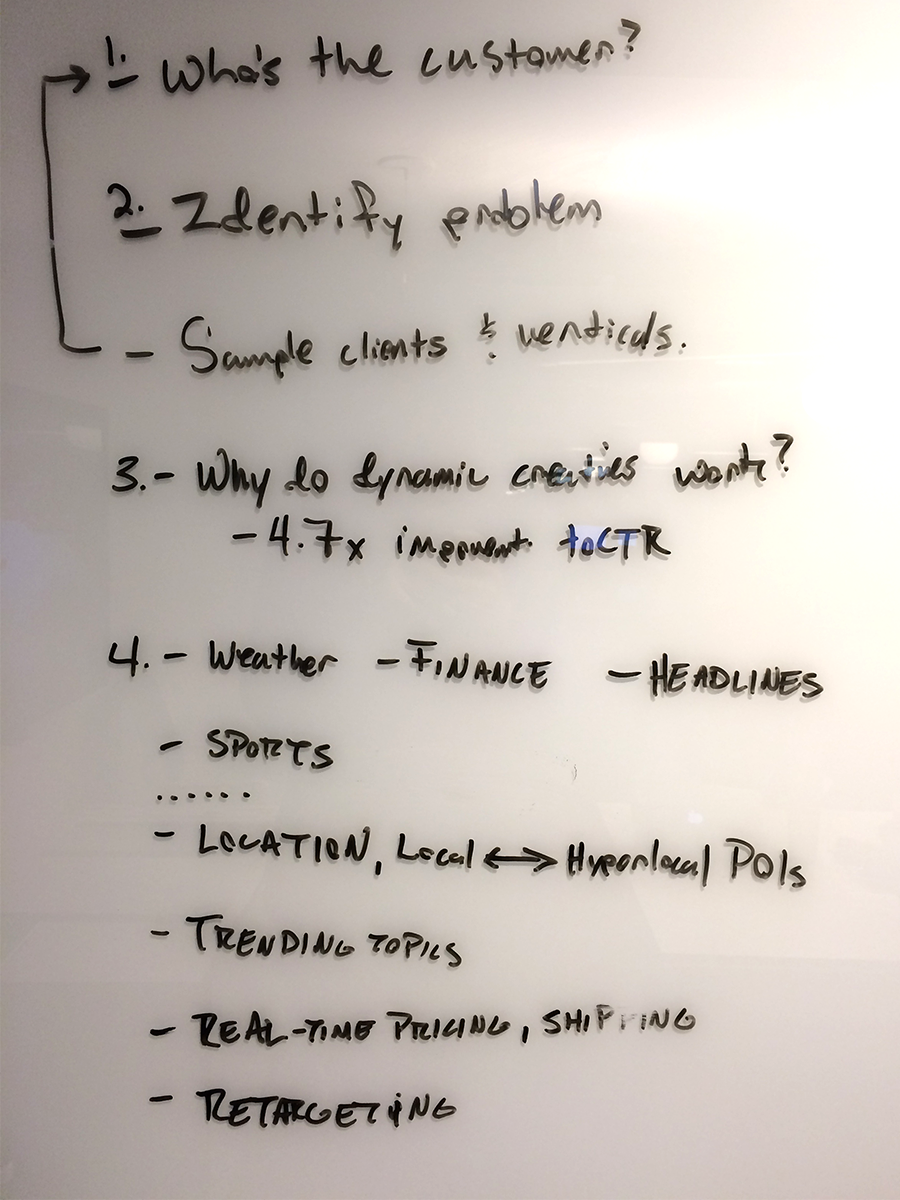 1. Who's the customer?
2. Identify problem
- Sample clients & verticals.
3. - Why do dynamic creatives work?
- 4.7x to CTR
4. - Weather - FINANCE - HEADLINES
- SPORTS
......
- LOCATION, Local ↔ Hyperlocal POIs
- TRENDING TOPICS
- REAL-TIME PRICING, SHIPPING
- RETARGETING